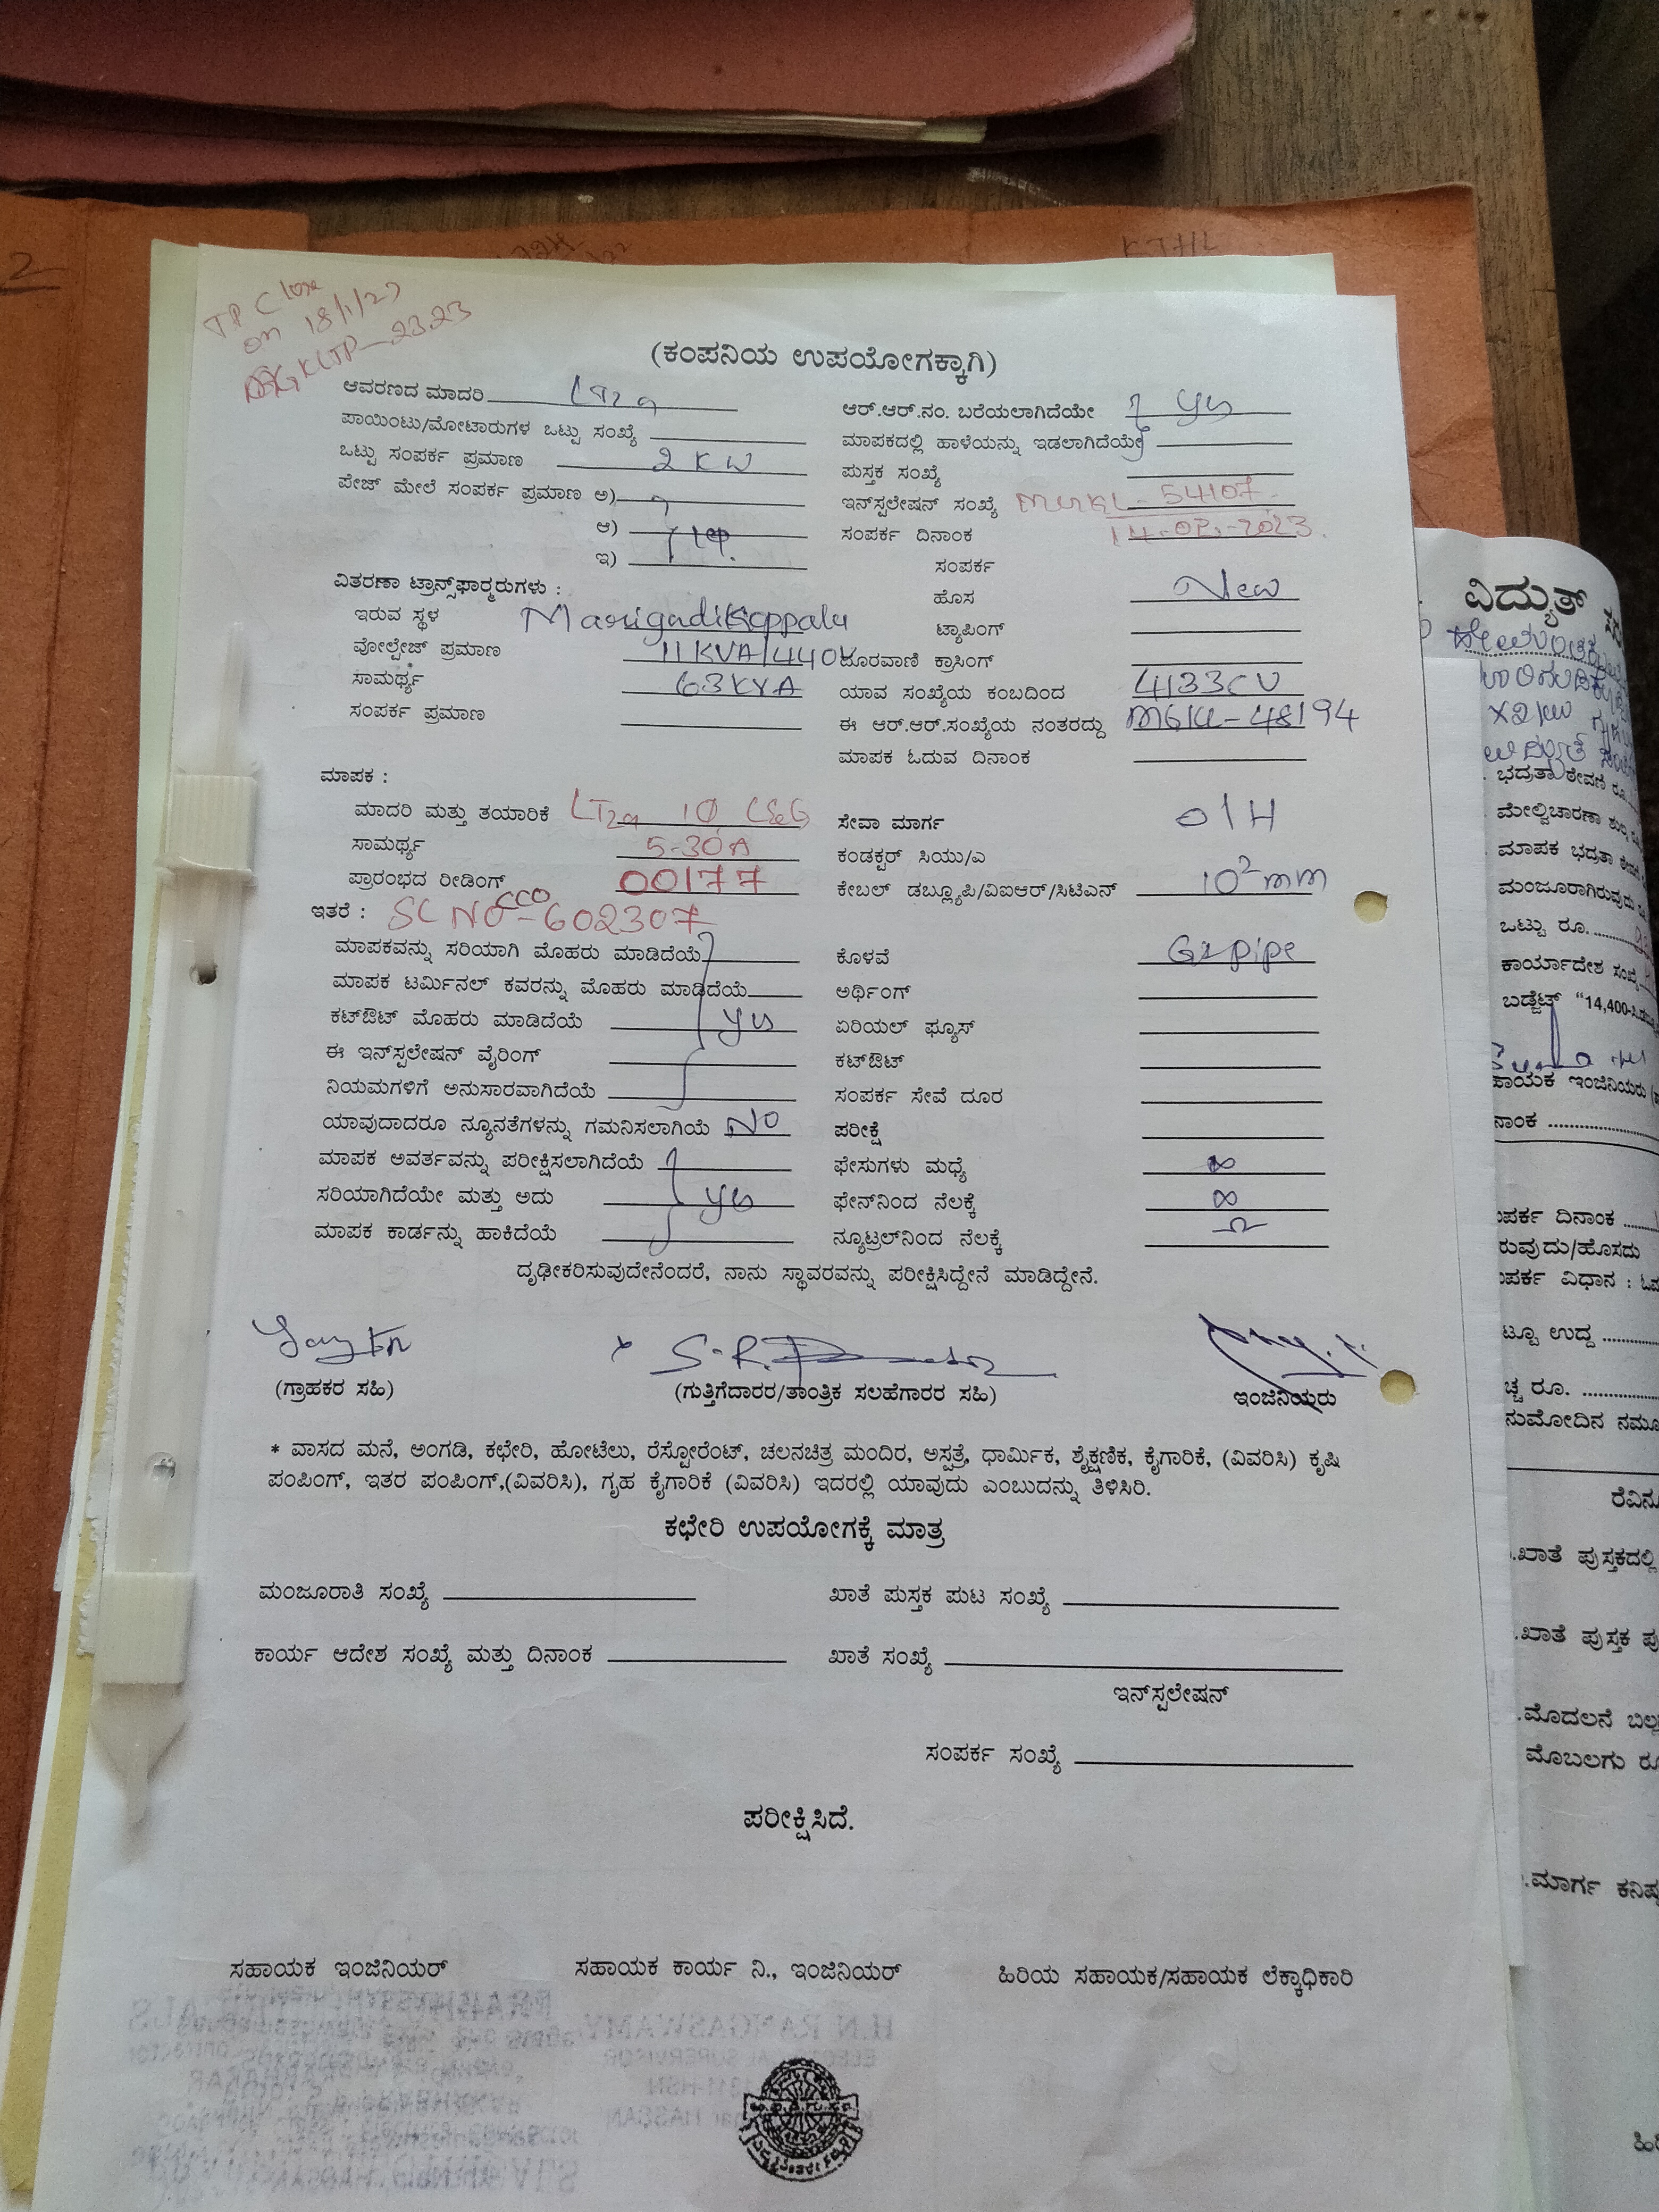 TP Close
on 18/1/23
KLTP-2323
(ಕಂಪನಿಯ ಉಪಯೋಗಕ್ಕಾಗಿ)
ಆವರಣದ ಮಾದರಿ LT2a
ಪಾಯಿಂಟು/ಮೋಟಾರುಗಳ ಒಟ್ಟು ಸಂಖ್ಯೆ
ಒಟ್ಟು ಸಂಪರ್ಕ ಪ್ರಮಾಣ 2 KW
ಪೇಜ್ ಮೇಲೆ ಸಂಪರ್ಕ ಪ್ರಮಾಣ ಅ)
ಆ) 1φ.
ಇ)
ವಿತರಣಾ ಟ್ರಾನ್ಸ್‌ಫಾರ್‍ಮರುಗಳು :
ಇರುವ ಸ್ಥಳ Marigudikoppalu
ವೋಲ್ಟೇಜ್ ಪ್ರಮಾಣ 11KVA/440V
ಸಾಮರ್ಥ್ಯ 63KVA
ಸಂಪರ್ಕ ಪ್ರಮಾಣ
ಆರ್.ಆರ್.ನಂ. ಬರೆಯಲಾಗಿದೆಯೇ Yes
ಮಾಪಕದಲ್ಲಿ ಹಾಳೆಯನ್ನು ಇಡಲಾಗಿದೆಯೇ
ಪುಸ್ತಕ ಸಂಖ್ಯೆ
ಇನ್‌ಸ್ಟಲೇಷನ್ ಸಂಖ್ಯೆ 54107
ಸಂಪರ್ಕ ದಿನಾಂಕ 14-02-2023.
ಸಂಪರ್ಕ
ಹೊಸ New
ಟ್ಯಾಪಿಂಗ್
ದೂರವಾಣಿ ಕ್ರಾಸಿಂಗ್
ಯಾವ ಸಂಖ್ಯೆಯ ಕಂಬದಿಂದ 4133CU
ಈ ಆರ್.ಆರ್.ಸಂಖ್ಯೆಯ ನಂತರದ್ದು MGKL-48194
ಮಾಪಕ ಓದುವ ದಿನಾಂಕ
ಮಾಪಕ :
ಮಾದರಿ ಮತ್ತು ತಯಾರಿಕೆ LT2a 1φ L&G
ಸಾಮರ್ಥ್ಯ 5-30A
ಪ್ರಾರಂಭದ ರೀಡಿಂಗ್ 00177
ಇತರೆ : SL NO-602307
ಮಾಪಕವನ್ನು ಸರಿಯಾಗಿ ಮೊಹರು ಮಾಡಿದೆಯೆ
ಮಾಪಕ ಟರ್ಮಿನಲ್ ಕವರನ್ನು ಮೊಹರು ಮಾಡಿದೆಯೆ
ಕಟ್‌ಔಟ್ ಮೊಹರು ಮಾಡಿದೆಯೆ Yes
ಈ ಇನ್‌ಸ್ಟಲೇಷನ್ ವೈರಿಂಗ್
ನಿಯಮಗಳಿಗೆ ಅನುಸಾರವಾಗಿದೆಯೆ
ಯಾವುದಾದರೂ ನ್ಯೂನತೆಗಳನ್ನು ಗಮನಿಸಲಾಗಿಯೆ NO
ಮಾಪಕ ಅವರ್ತವನ್ನು ಪರೀಕ್ಷಿಸಲಾಗಿದೆಯೆ
ಸರಿಯಾಗಿದೆಯೇ ಮತ್ತು ಅದು Yes
ಮಾಪಕ ಕಾರ್ಡನ್ನು ಹಾಕಿದೆಯೆ
ಸೇವಾ ಮಾರ್ಗ O/H
ಕಂಡಕ್ಟರ್ ಸಿಯು/ಎ
ಕೇಬಲ್ ಡಬ್ಲ್ಯೂಪಿ/ವಿಐಆರ್/ಸಿಟಿಎನ್ 10²mm
ಕೊಳವೆ GIpipe
ಅರ್ಥಿಂಗ್
ಏರಿಯಲ್ ಫ್ಯೂಸ್
ಕಟ್‌ಔಟ್
ಸಂಪರ್ಕ ಸೇವೆ ದೂರ
ಪರೀಕ್ಷೆ
ಫೇಸುಗಳು ಮಧ್ಯೆ ∞
ಫೇನ್‌ನಿಂದ ನೆಲಕ್ಕೆ ∞
ನ್ಯೂಟ್ರಲ್‌ನಿಂದ ನೆಲಕ್ಕೆ Ω
ದೃಢೀಕರಿಸುವುದೇನೆಂದರೆ, ನಾನು ಸ್ಥಾವರವನ್ನು ಪರೀಕ್ಷಿಸಿದ್ದೇನೆ ಮಾಡಿದ್ದೇನೆ.
(ಗ್ರಾಹಕರ ಸಹಿ) (ಗುತ್ತಿಗೆದಾರರ/ತಾಂತ್ರಿಕ ಸಲಹೆಗಾರರ ಸಹಿ) ಇಂಜಿನಿಯರು
* ವಾಸದ ಮನೆ, ಅಂಗಡಿ, ಕಛೇರಿ, ಹೋಟೆಲು, ರೆಸ್ಟೋರೆಂಟ್, ಚಲನಚಿತ್ರ ಮಂದಿರ, ಅಸ್ಪತ್ರೆ, ಧಾರ್ಮಿಕ, ಶೈಕ್ಷಣಿಕ, ಕೈಗಾರಿಕೆ, (ವಿವರಿಸಿ) ಕೃಷಿ
ಪಂಪಿಂಗ್, ಇತರ ಪಂಪಿಂಗ್,(ವಿವರಿಸಿ), ಗೃಹ ಕೈಗಾರಿಕೆ (ವಿವರಿಸಿ) ಇದರಲ್ಲಿ ಯಾವುದು ಎಂಬುದನ್ನು ತಿಳಿಸಿರಿ.
ಕಛೇರಿ ಉಪಯೋಗಕ್ಕೆ ಮಾತ್ರ
ಮಂಜೂರಾತಿ ಸಂಖ್ಯೆ ಖಾತೆ ಪುಸ್ತಕ ಪುಟ ಸಂಖ್ಯೆ
ಕಾರ್ಯ ಆದೇಶ ಸಂಖ್ಯೆ ಮತ್ತು ದಿನಾಂಕ ಖಾತೆ ಸಂಖ್ಯೆ
ಇನ್‌ಸ್ಟಲೇಷನ್
ಸಂಪರ್ಕ ಸಂಖ್ಯೆ
ಪರೀಕ್ಷಿಸಿದೆ.
ಸಹಾಯಕ ಇಂಜಿನಿಯರ್ ಸಹಾಯಕ ಕಾರ್ಯ ನಿ., ಇಂಜಿನಿಯರ್ ಹಿರಿಯ ಸಹಾಯಕ/ಸಹಾಯಕ ಲೆಕ್ಕಾಧಿಕಾರಿ
ವಿದ್ಯುತ್
ಒಟ್ಟು ರೂ.